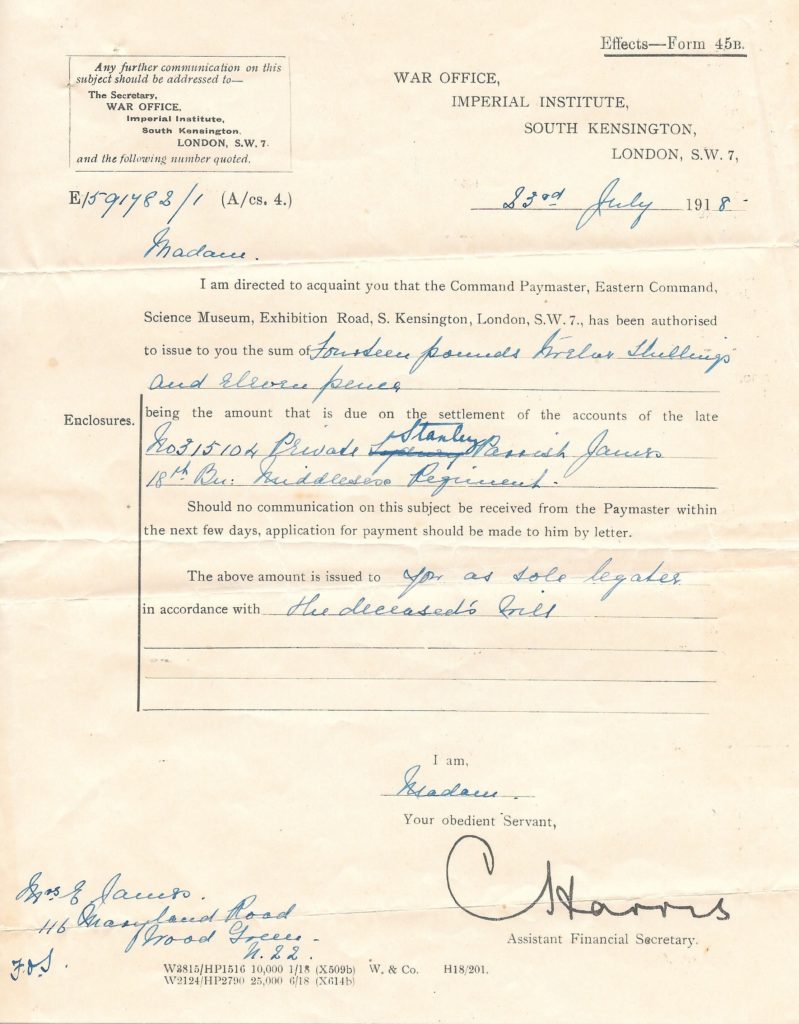 Effects—Form 45B.
Any further communication on this
subject should be addressed to—
The Secretary,
WAR OFFICE,
Imperial Institute,
South Kensington,
LONDON, S.W. 7.
and the following number quoted.
WAR OFFICE,
IMPERIAL INSTITUTE,
SOUTH KENSINGTON,
LONDON, S.W. 7,
E/591782/1 (A/cs. 4.)
23rd July 1918
Madam.
I am directed to acquaint you that the Command Paymaster, Eastern Command,
Science Museum, Exhibition Road, S. Kensington, London, S.W. 7., has been authorised
to issue to you the sum of Fourteen pounds Twelve Shillings
and Eleven pence
Enclosures.
being the amount that is due on the settlement of the accounts of the late
Stanley
No 315104 Private Parrish James
18th Bn: Middlesex Regiment.
Should no communication on this subject be received from the Paymaster within
the next few days, application for payment should be made to him by letter.
The above amount is issued to you as sole legatee
in accordance with the deceased's Will
I am,
Madam.
Your obedient Servant,
C Harris
Assistant Financial Secretary.
Mrs E James.
116 Maryland Road
Wood Green
N. 22.
W3815/HP1516 10,000 1/18 (X509b) W. & Co. H18/201.
W2124/HP2790 25,000 6/18 (X614b)